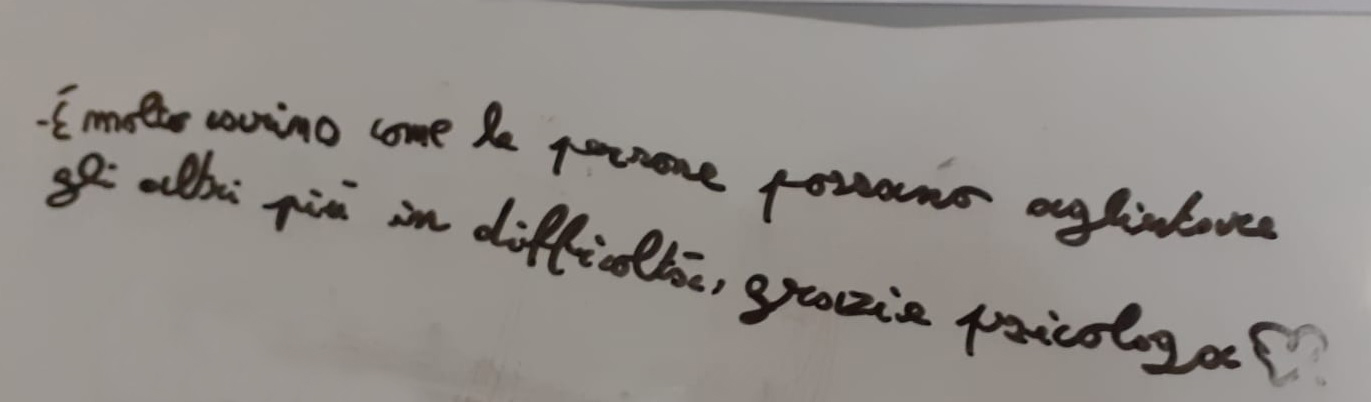 -É molto carino come le persone possano agliutare
gli altri più in difficoltà, grazie psicologa ♡